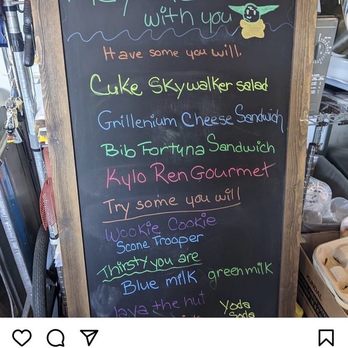 with you
Have some you will.
Cuke Skywalker salad
Grillenium Cheese Sandwich
Bib Fortuna Sandwich
Kylo Ren Gourmet
Try some you will
Wookie Cookie
Scone Trooper
Thirsty you are
Blue milk green milk
Java the hut
Yoda
Soda